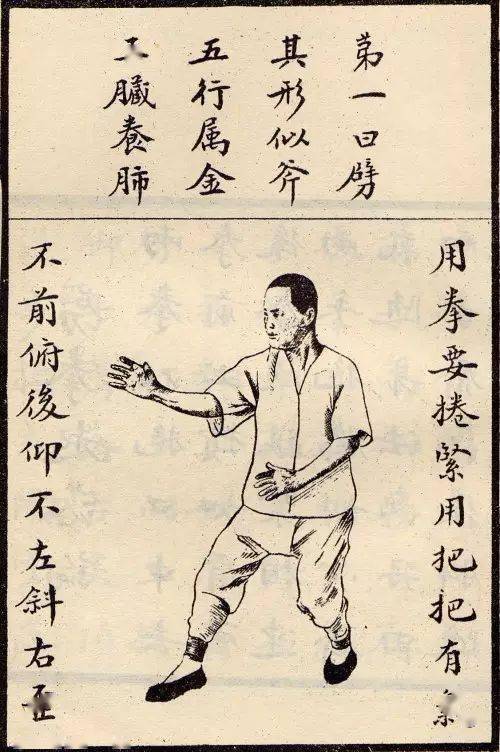 第一曰劈
其形似斧
五行属金
五臟養肺
用拳要捲緊用把把有
不前俯後仰不左斜右歪